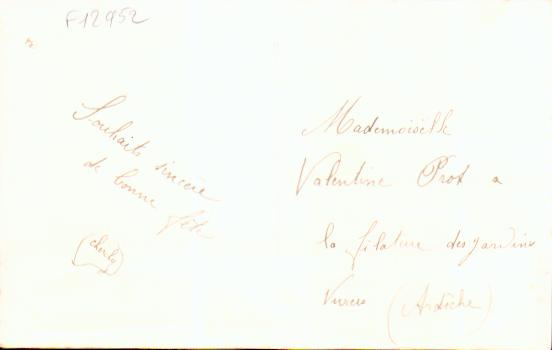 F12952
Souhaits sincère
de bonne fête
Mademoiselle
Valentine Prot a
la filature des jardins
(Ardèche)